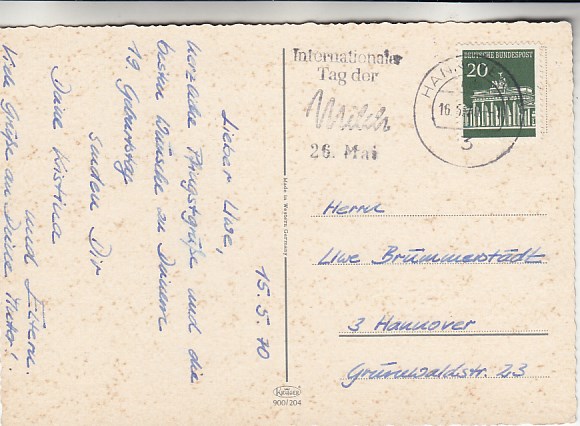 15.5.70
Lieber Uwe,
herzliche Pfingstgrüße und die
besten Wünsche zu Deinem
19. Geburtstag
senden Dir
Deine Kristina
und Eltern.
Viele Grüße an Deine Mutter!
Made in Western Germany
Krüger
900/204
Internationaler
Tag der
Milch
26. Mai
HANNOVER
16.5.
3
DEUTSCHE BUNDESPOST
20
Herrn
Uwe Brummerstädt
3 Hannover
Grunwaldstr. 23